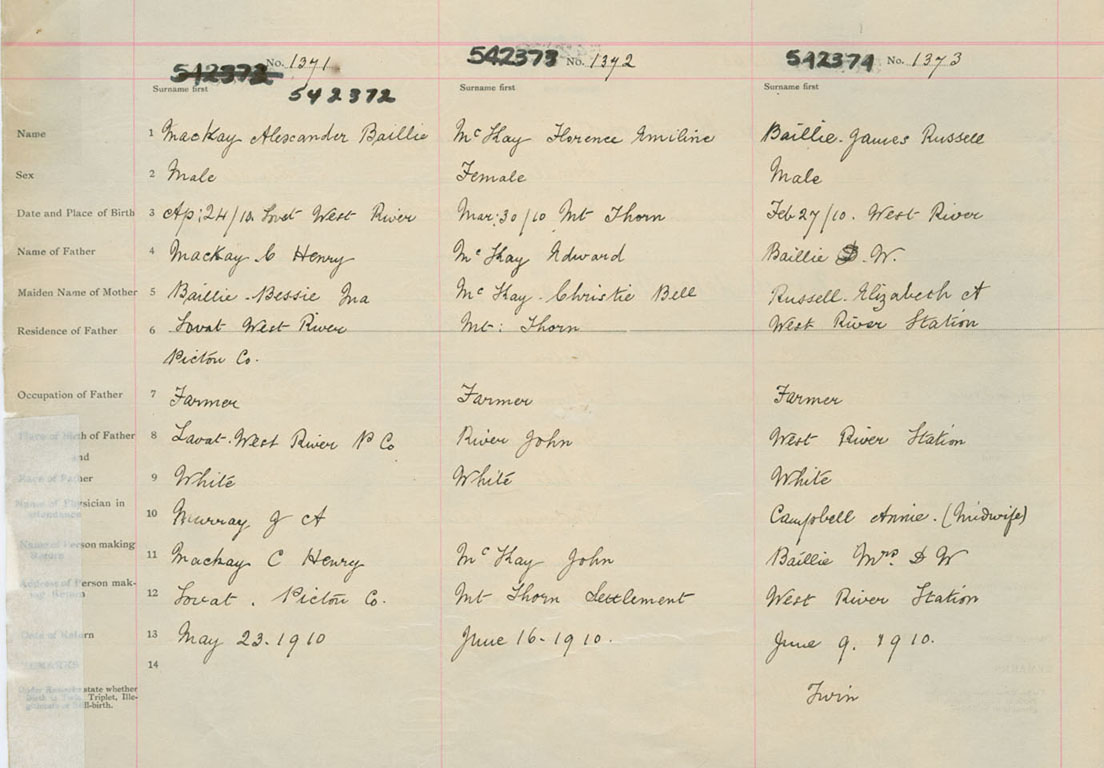 542372 No. 1371 542373 No. 1372 542374 No. 1373
542372
Surname first Surname first Surname first
Name 1 MacKay Alexander Baillie McKay Florence Emiline Baillie. James Russell
Sex 2 Male Female Male
Date and Place of Birth 3 Ap: 24/10. Lovat West River Mar: 30/10 Mt Thom Feb 27/10. West River
Name of Father 4 Mackay C Henry McKay Edward Baillie D. W.
Maiden Name of Mother 5 Baillie - Bessie Ina McKay - Christie Bell Russell. Elizabeth A
Residence of Father 6 Lovat West River Mt: Thom West River Station
Pictou Co.
Occupation of Father 7 Farmer Farmer Farmer
Place of Birth of Father 8 Lovat. West River P Co River John West River Station
and
Race of Father 9 White White White
Name of Physician in
attendance 10 Murray J A Campbell Annie. (Midwife)
Name of Person making
Return 11 Mackay C Henry McKay John Baillie Mrs. D W
Address of Person mak-
ing Return 12 Lovat. Pictou Co. Mt Thom Settlement West River Station
Date of Return 13 May 23. 1910 June 16 - 1910. June 9. 1910.
REMARKS 14
Under Remarks state whether
birth is Twin, Triplet, Ille-
gitimate or Still-birth. Twin